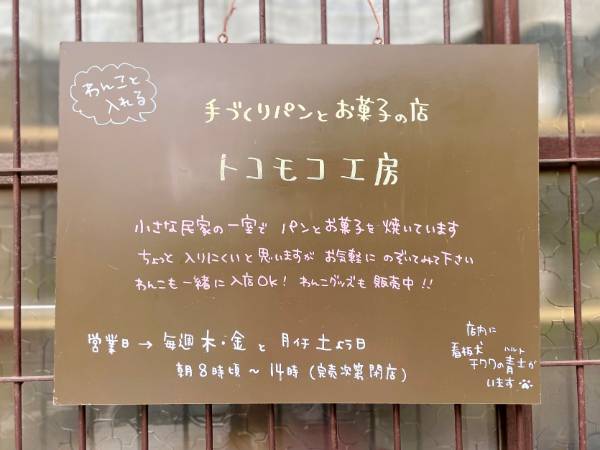 わんこと
入れる
手づくりパンとお菓子の店
トコモコ工房
小さな民家の一室で パンとお菓子を 焼いています
ちょっと 入りにくいと 思いますが お気軽に のぞいてみて下さい
わんこも 一緒に 入店OK! わんこグッズも 販売中!!
営業日→毎週 木・金と 月1千 土よう日
朝8時頃～14時(完売次第閉店)
店内に
看板犬 ハルト
チワワの青士が
います